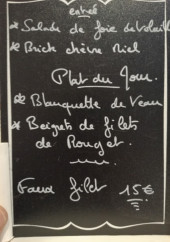 entreé
* Salade de foie de volaill
* Brick chèvre Miel
Plat du Jour.
* Blanquette de Veau
* Beignets de filets
de Rouget.
Faux filet 15€